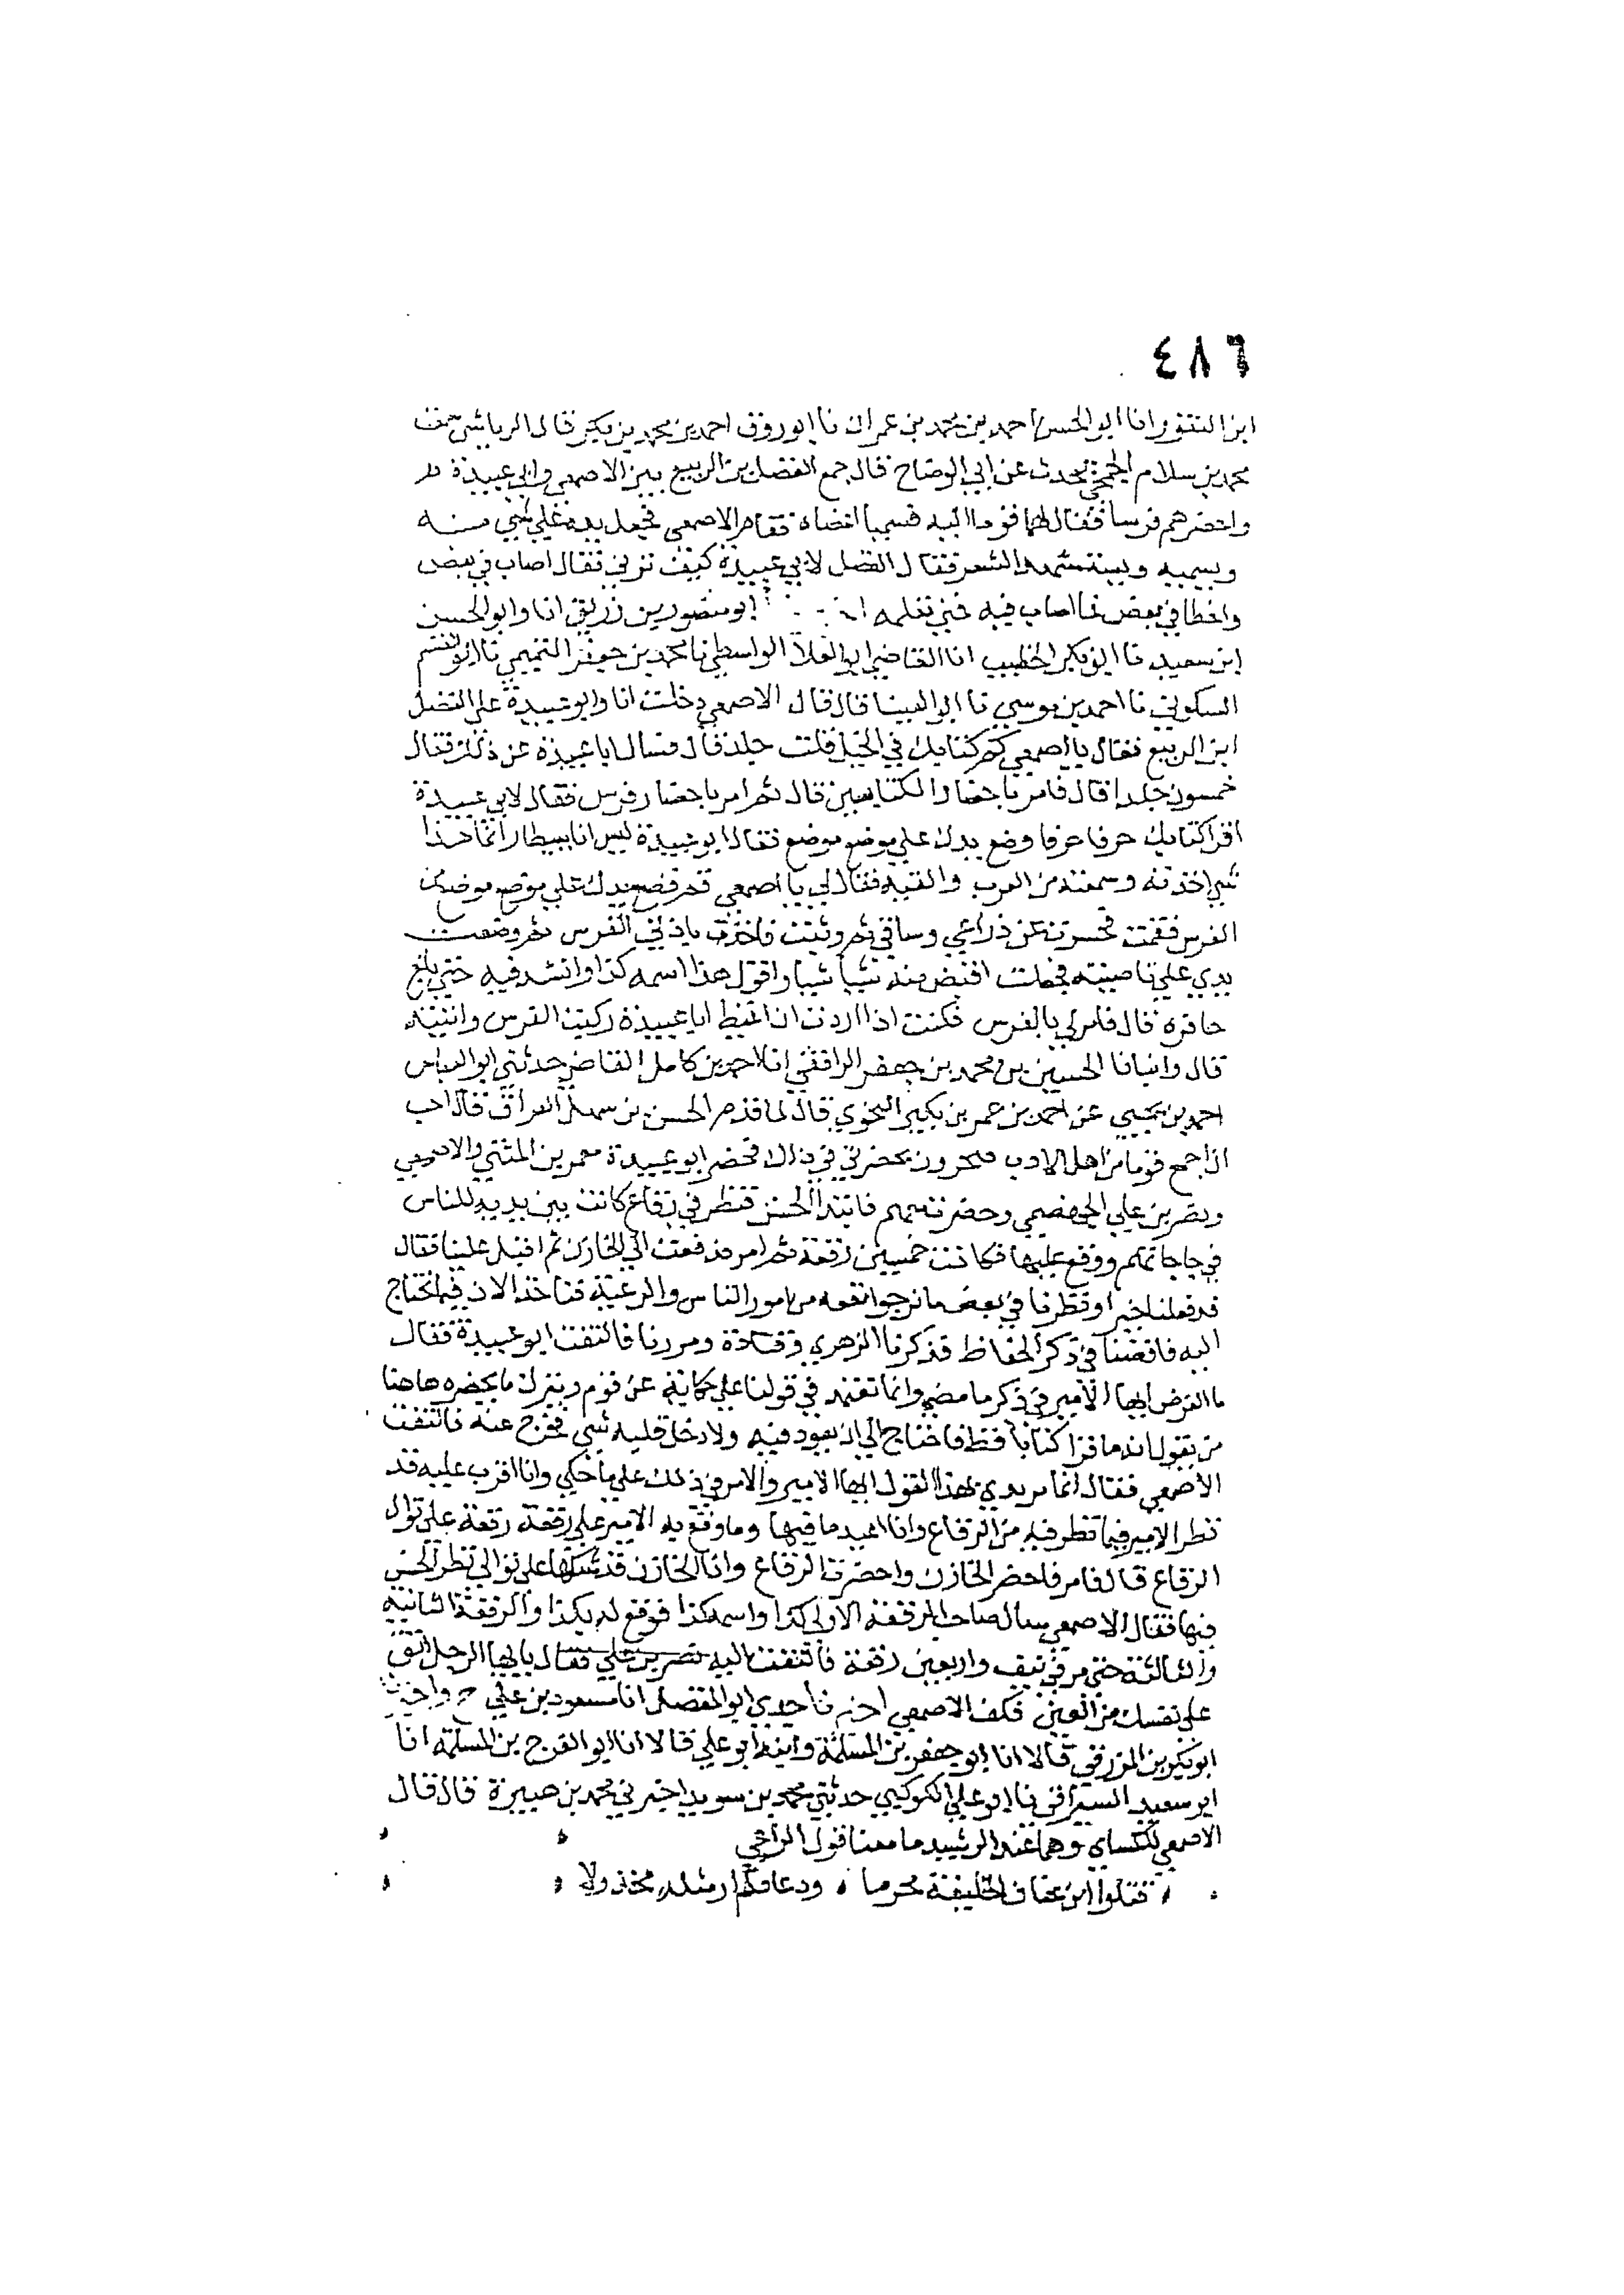 ٤٨٦
ابن النقور انا ابو الحسن احمد بن محمد بن عمران نا ابو روق احمد بن محمد بن بكير قال الرياشي سمعت
محمد بن سلام الجمحي يحدث عن ابي الوضاح قال جمع الفضل بن الربيع بين الاصمعي وابي عبيدة
واحضرهم فرسا فقال لهما قوما اليه فسميا اعضاه فقام الاصمعي فجعل يده علي شي منه
ويسميه وينشد الشعر فقال الفضل لابي عبيدة كيف تري فقال اصاب في بعض
واخطا في بعض فما اصاب فيه فمني تعلمه ابو منصور بن زريق انا وابو الحسن
ابن سعيد نا ابو بكر الخطيب انا القاضي ابو العلا الواسطي نا محمد بن جعفر التميمي نا ابو القسم
السكوني نا احمد بن موسي نا ابو العينا قال قال الاصمعي دخلت انا وابو عبيدة علي الفضل
ابن الربيع فقال يا اصمعي كم كتابك في الخيل فقلت جلد قال فسال ابا عبيدة عن ذلك فقال
خمسون جلدا قال فامر باحضار الكتابين قال ثم امر باحضار فرس فقال لابي عبيدة
اقرا كتابك حرفا حرفا وضع يدك علي موضع موضع فقال ابو عبيدة ليس انا بيطار انما هذا
شي اخذته وسمعته من العرب والفته فقال لي يا اصمعي قم فضع يدك علي موضع موضع من
الفرس فقمت فحسرت عن ذراعي وساقي ثم وثبت فاخذت باذني الفرس ثم وضعت
يدي علي ناصيته فجعلت اقبض منه شيا شيا واقول هذا اسمه كذا وانشد فيه حتي بلغ
حافره قال فامر لي بالفرس فكنت اذا اردت ان اغيظ ابا عبيدة ركبت الفرس واتيته
قال وانبانا الحسين بن محمد بن جعفر الرافقي انا احمد بن كامل القاضي حدثني ابو العباس
احمد بن يحيي عن احمد بن عمر بن بكير النحوي قال لما قدم الحسن بن سهل العراق قال احب
ان اجمع قوما من اهل الادب يحضرني في ذلك فحضر ابو عبيدة معمر بن المثني والاصمعي
ونصر بن علي الجهضمي وحضرت معهم فابتدا الحسن فنظر في رقاع كانت بين يديه للناس
في حاجاتهم ووقع عليها فكانت خمسين رقعة ثم امر فدفعت الي الخازن ثم اقبل علينا فقال
قد فعلنا خيرا ونظرنا في بعض ما نرجوا نفعه من امور الناس والرعية فناخذ الان فيما نحتاج
اليه فافضنا في ذكر الحفاظ فذكرنا الزهري وقتادة ومررنا فالتفت ابو عبيدة فقال
ما الغرض ايها الامير في ذكر ما مضي وانما نعتمد في قولنا علي حكاية عن قوم ونترك ما يحضره هاهنا
من يقول انه ما قرا كتابا قط فاحتاج الي ان يعود فيه ولا دخل قلبه شي فخرج عنه فالتفت
الاصمعي فقال انما يريدني بهذا القول ايها الامير والامر في ذلك علي ما حكي وانا اقرب عليه قد
نظر الامير فيما نظر فيه من الرقاع وانا اعيد ما فيها وما وقع به الامير علي رقعة رقعة علي توالي
الرقاع قال فامر فاحضر الخازن واحضرت الرقاع واذا الخازن قد شكها علي توالي نظر الحسن
فيها فقال الاصمعي سال صاحب الرقعة الاولي كذا واسمه كذا فوقع له بكذا والرقعة الثانية
والثالثة حتي مر في نيف واربعين رقعة فالتفت اليه نصر بن علي فقال يا ايها الرجل اتق
علي نفسك من العين فكف الاصمعي اخبرنا جدي ابو المفضل انا مسعود بن علي ح واخبرنا
ابو بكر بن المزرفي قالا انا ابو جعفر بن المسلمة وابنه ابو علي قالا انا ابو الفرج بن المسلمة انا
ابو سعيد السيرافي نا ابو علي الكوكبي حدثني محمد بن سويد اخبرني محمد بن هبيرة قال قال
الاصمعي للكساي وهما عند الرشيد ما معنا قول الراعي
قتلوا ابن عفان الخليفة محرما ودعا فلم ار مثله مخذولا